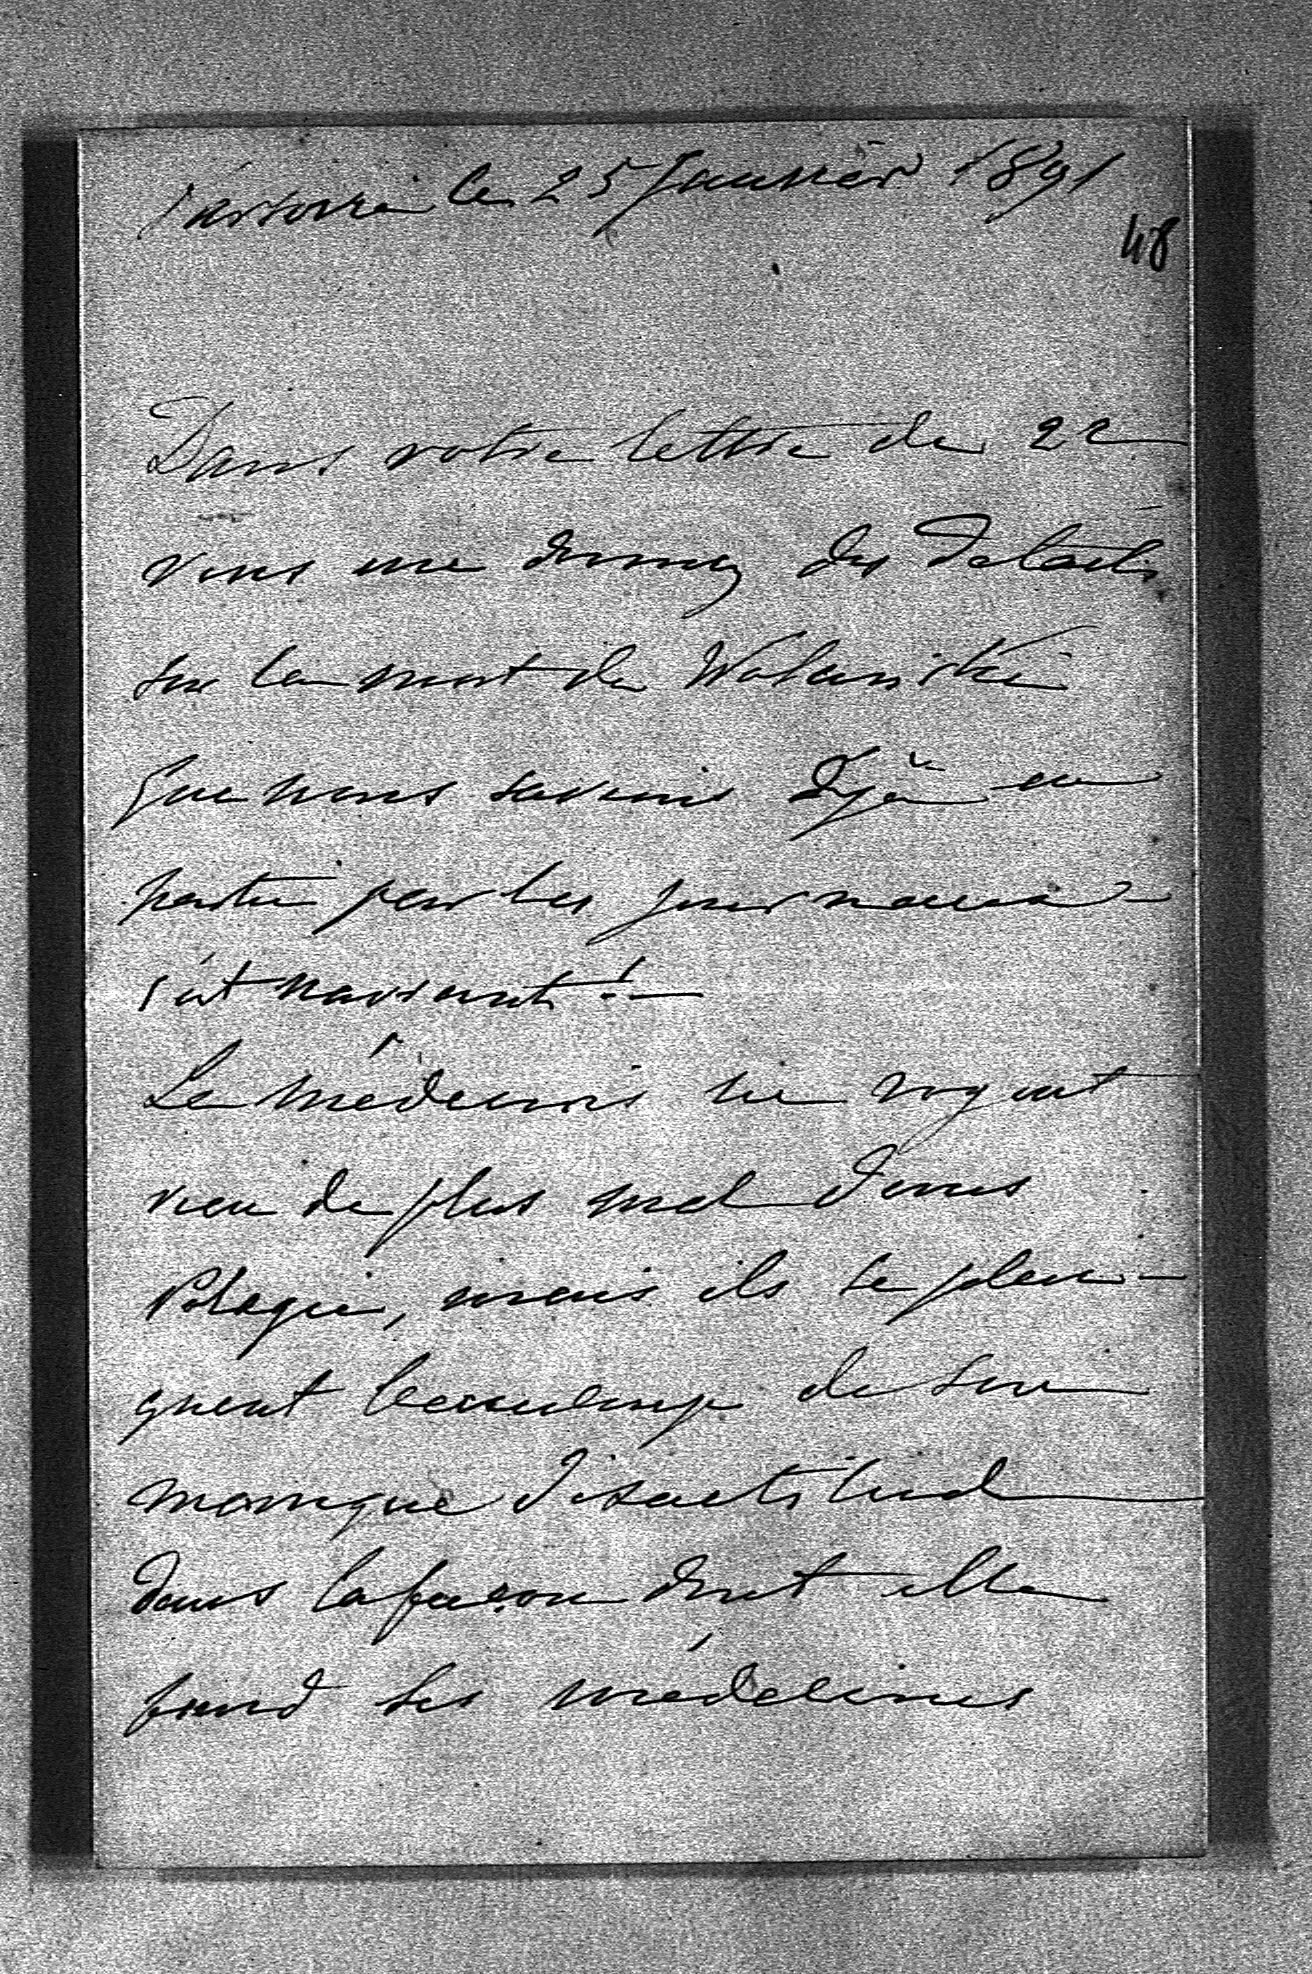 Varsovie le 25 Janvier 1891
48
Dans votre lettre de 22
vous me donnez des détails
sur la mort de Wolanski
que nous savions déjà en
partie par les journaux
c'est navrant !
Le médecins ne voyent
rien de plus mal dans
Pelagie, mais ils se plai-
gnent beaucoup de son
manque d'exactitud
dans la façon dont elle
prend ses médecines